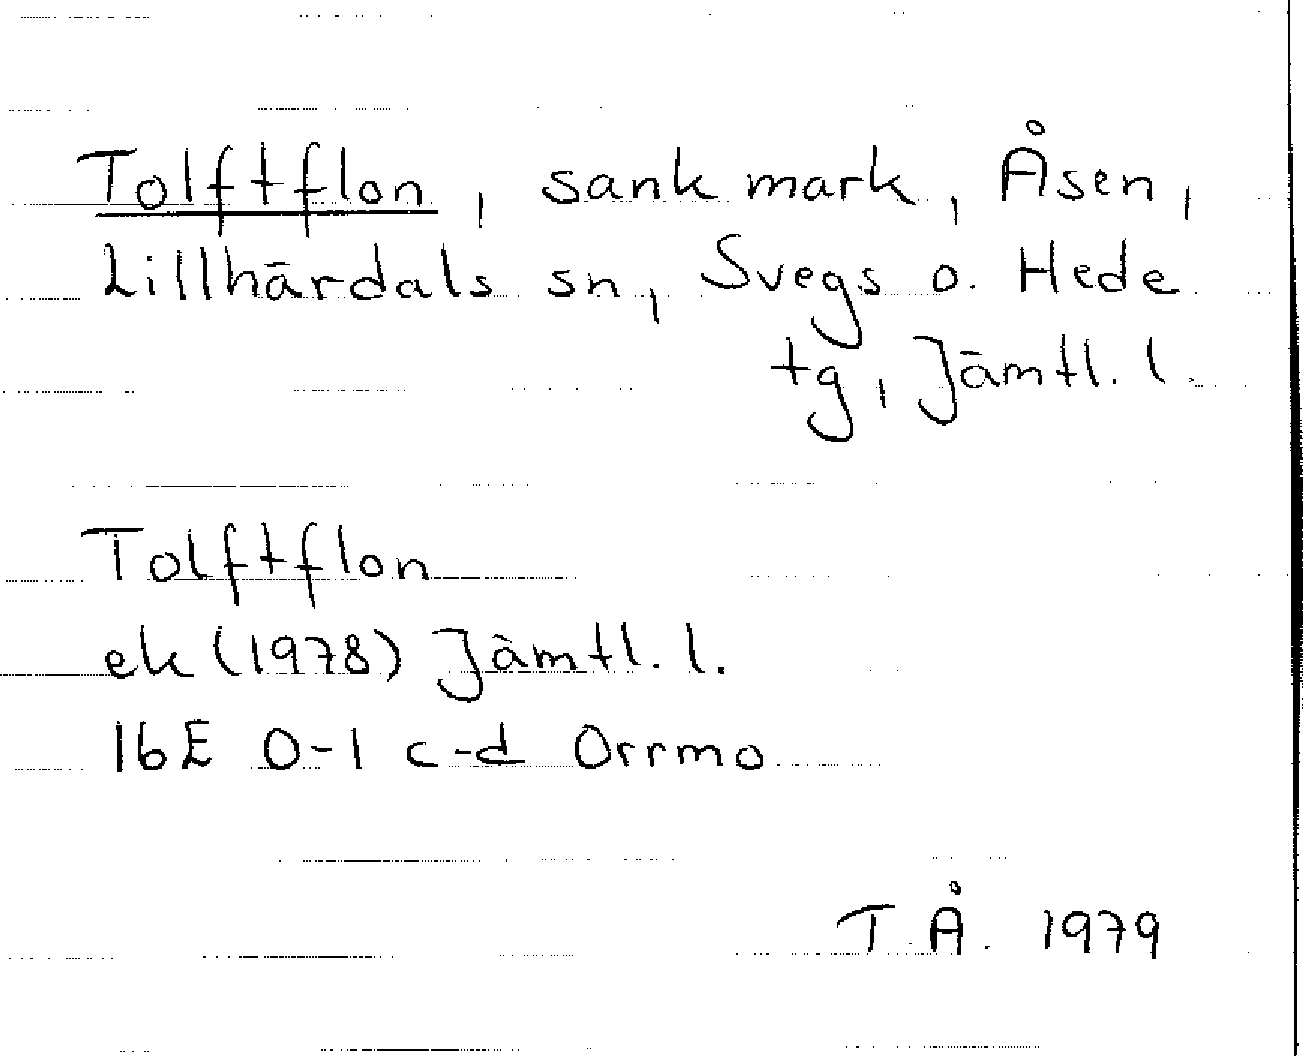 Tolftflon, sank mark, Åsen,
Lillhärdals sn, Svegs o. Hede
tg, Jämtl. l.
Tolftflon
ek (1978) Jämtl. l.
16E 0-1 c-d Orrmo
T.Å. 1979